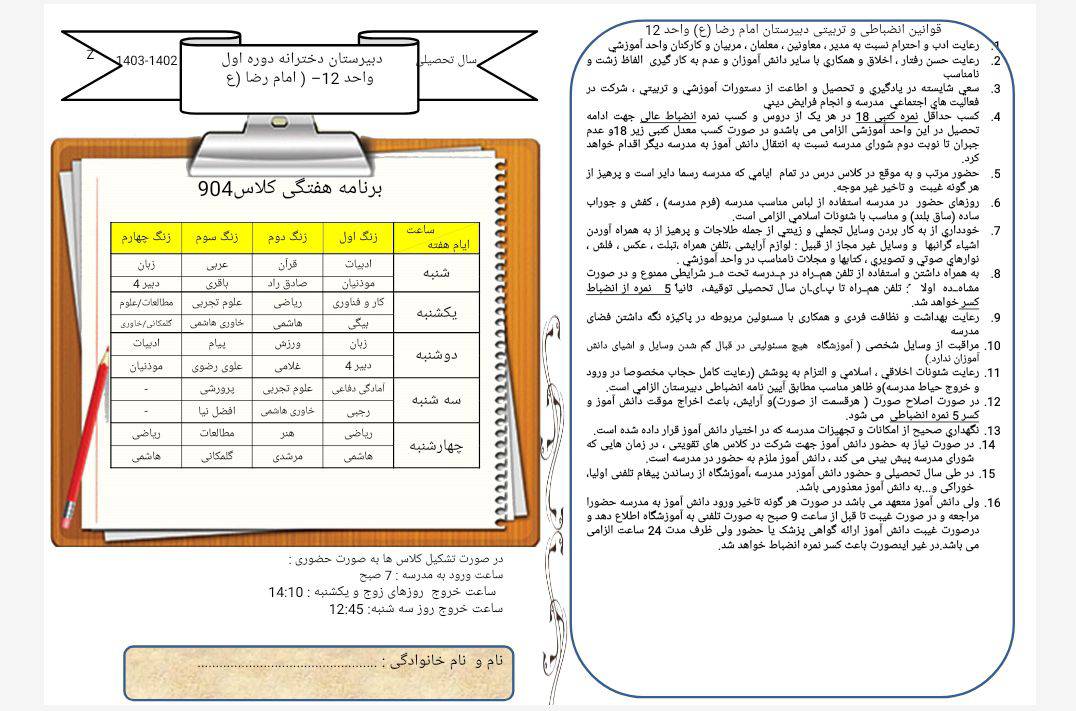 قوانین انضباطی و تربیتی دبیرستان امام رضا (ع) واحد 12
1. رعایت ادب و احترام نسبت به مدیر ، معاونین ، معلمان ، مربیان و کارکنان واحد آموزشي
2. رعایت حسن رفتار ، اخلاق و همکاري با سایر دانش آموزان و عدم به کار گیري الفاظ زشت و
نامناسب
3. سعي شایسته در یادگیري و تحصیل و اطاعت از دستورات آموزشي و تربیتي ، شرکت در
فعالیت هاي اجتماعي مدرسه و انجام فرایض دیني
4. کسب حداقل نمره کتبی 18 در هر یک از دروس و کسب نمره انضباط عالی جهت ادامه
تحصیل در این واحد آموزشی الزامی می باشدو در صورت کسب معدل کتبی زیر 18و عدم
جبران تا نوبت دوم شورای مدرسه نسبت به انتقال دانش آموز به مدرسه دیگر اقدام خواهد
کرد.
5. حضور مرتب و به موقع در کلاس درس در تمام ایامي که مدرسه رسما دایر است و پرهیز از
هر گونه غیبت و تاخیر غیر موجه.
6. روزهای حضور در مدرسه استفاده از لباس مناسب مدرسه (فرم مدرسه) ، کفش و جوراب
ساده (ساق بلند) و مناسب با شئونات اسلامي الزامی است.
7. خودداري از به کار بردن وسایل تجملي و زینتي از جمله طلاجات و پرهیز از به همراه آوردن
اشیاء گرانبها و وسایل غیر مجاز از قبیل : لوازم آرایشي ،تلفن همراه ،تبلت ، عکس ، فلش ،
نوارهاي صوتي و تصویري ، کتابها و مجلات نامناسب در واحد آموزشي .
8. به همراه داشتن و استفاده از تلفن همـراه در مـدرسه تحت هـر شرایطی ممنوع و در صورت
مشاهـده اولا : تلفن همـراه تا پـایـان سال تحصیلی توقیف، ثانیا 5 نمره از انضباط
کسر خواهد شد.
9. رعایت بهداشت و نظافت فردی و همکاری با مسئولین مربوطه در پاکیزه نگه داشتن فضای
مدرسه
10. مراقبت از وسایل شخصی ( آموزشگاه هیچ مسئولیتی در قبال گم شدن وسایل و اشیای دانش
آموزان ندارد.)
11. رعایت شئونات اخلاقي ، اسلامي و التزام به پوشش (رعایت کامل حجاب مخصوصا در ورود
و خروج حیاط مدرسه)و ظاهر مناسب مطابق آیین نامه انضباطي دبیرستان الزامي است.
12. در صورت اصلاح صورت ( هرقسمت از صورت)و آرایش، باعث اخراج موقت دانش آموز و
کسر 5 نمره انضباطی می شود.
13. نگهداري صحیح از امکانات و تجهیزات مدرسه که در اختیار دانش آموز قرار داده شده است.
14. در صورت نیاز به حضور دانش آموز جهت شرکت در کلاس های تقویتی ، در زمان هایی که
شورای مدرسه پیش بینی می کند ، دانش آموز ملزم به حضور در مدرسه است.
15. در طی سال تحصیلی و حضور دانش آموزدر مدرسه ،آموزشگاه از رساندن پیغام تلفنی اولیا،
خوراکی و...به دانش آموز معذورمی باشد.
16. ولی دانش آموز متعهد می باشد در صورت هر گونه تاخیر ورود دانش آموز به مدرسه حضورا
مراجعه و در صورت غیبت تا قبل از ساعت 9 صبح به صورت تلفنی به آموزشگاه اطلاع دهد و
درصورت غیبت دانش آموز ارائه گواهی پزشک یا حضور ولی ظرف مدت 24 ساعت الزامی
می باشد.در غیر اینصورت باعث کسر نمره انضباط خواهد شد.
سال تحصیلی
دبیرستان دخترانه دوره اول
واحد 12– ( امام رضا (ع
1403-1402
Z
برنامه هفتگی کلاس904
ساعت ایام هفته زنگ اول زنگ دوم زنگ سوم زنگ چهارم
شنبه ادبیات قرآن عربی زبان
موذنیان صادق راد باقری دبیر 4
یکشنبه کار و فناوری ریاضی علوم تجربی مطالعات/علوم
بیگی هاشمی خاوری هاشمی گلمکانی/خاوری
دوشنبه زبان ورزش پیام ادبیات
دبیر 4 غلامی علوی رضوی موذنیان
سه شنبه آمادگی دفاعی علوم تجربی پرورشی -
رجبی خاوری هاشمی افضل نیا -
چهارشنبه ریاضی هنر مطالعات ریاضی
هاشمی مرشدی گلمکانی هاشمی
در صورت تشکیل کلاس ها به صورت حضوری :
ساعت ورود به مدرسه : 7 صبح
ساعت خروج روزهای زوج و یکشنبه : 14:10
ساعت خروج روز سه شنبه: 12:45
نام و نام خانوادگی : ................................................